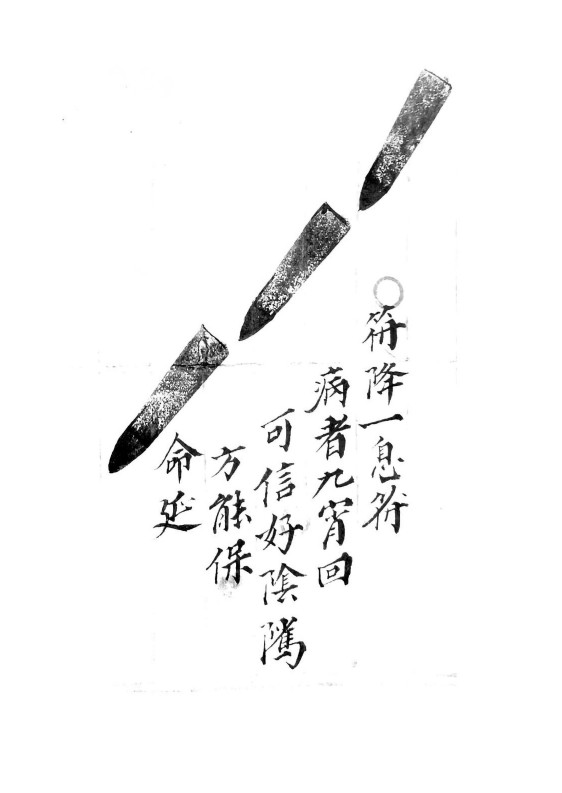 符降一息符
病者九宵回
可信好陰隲
方能保
命延